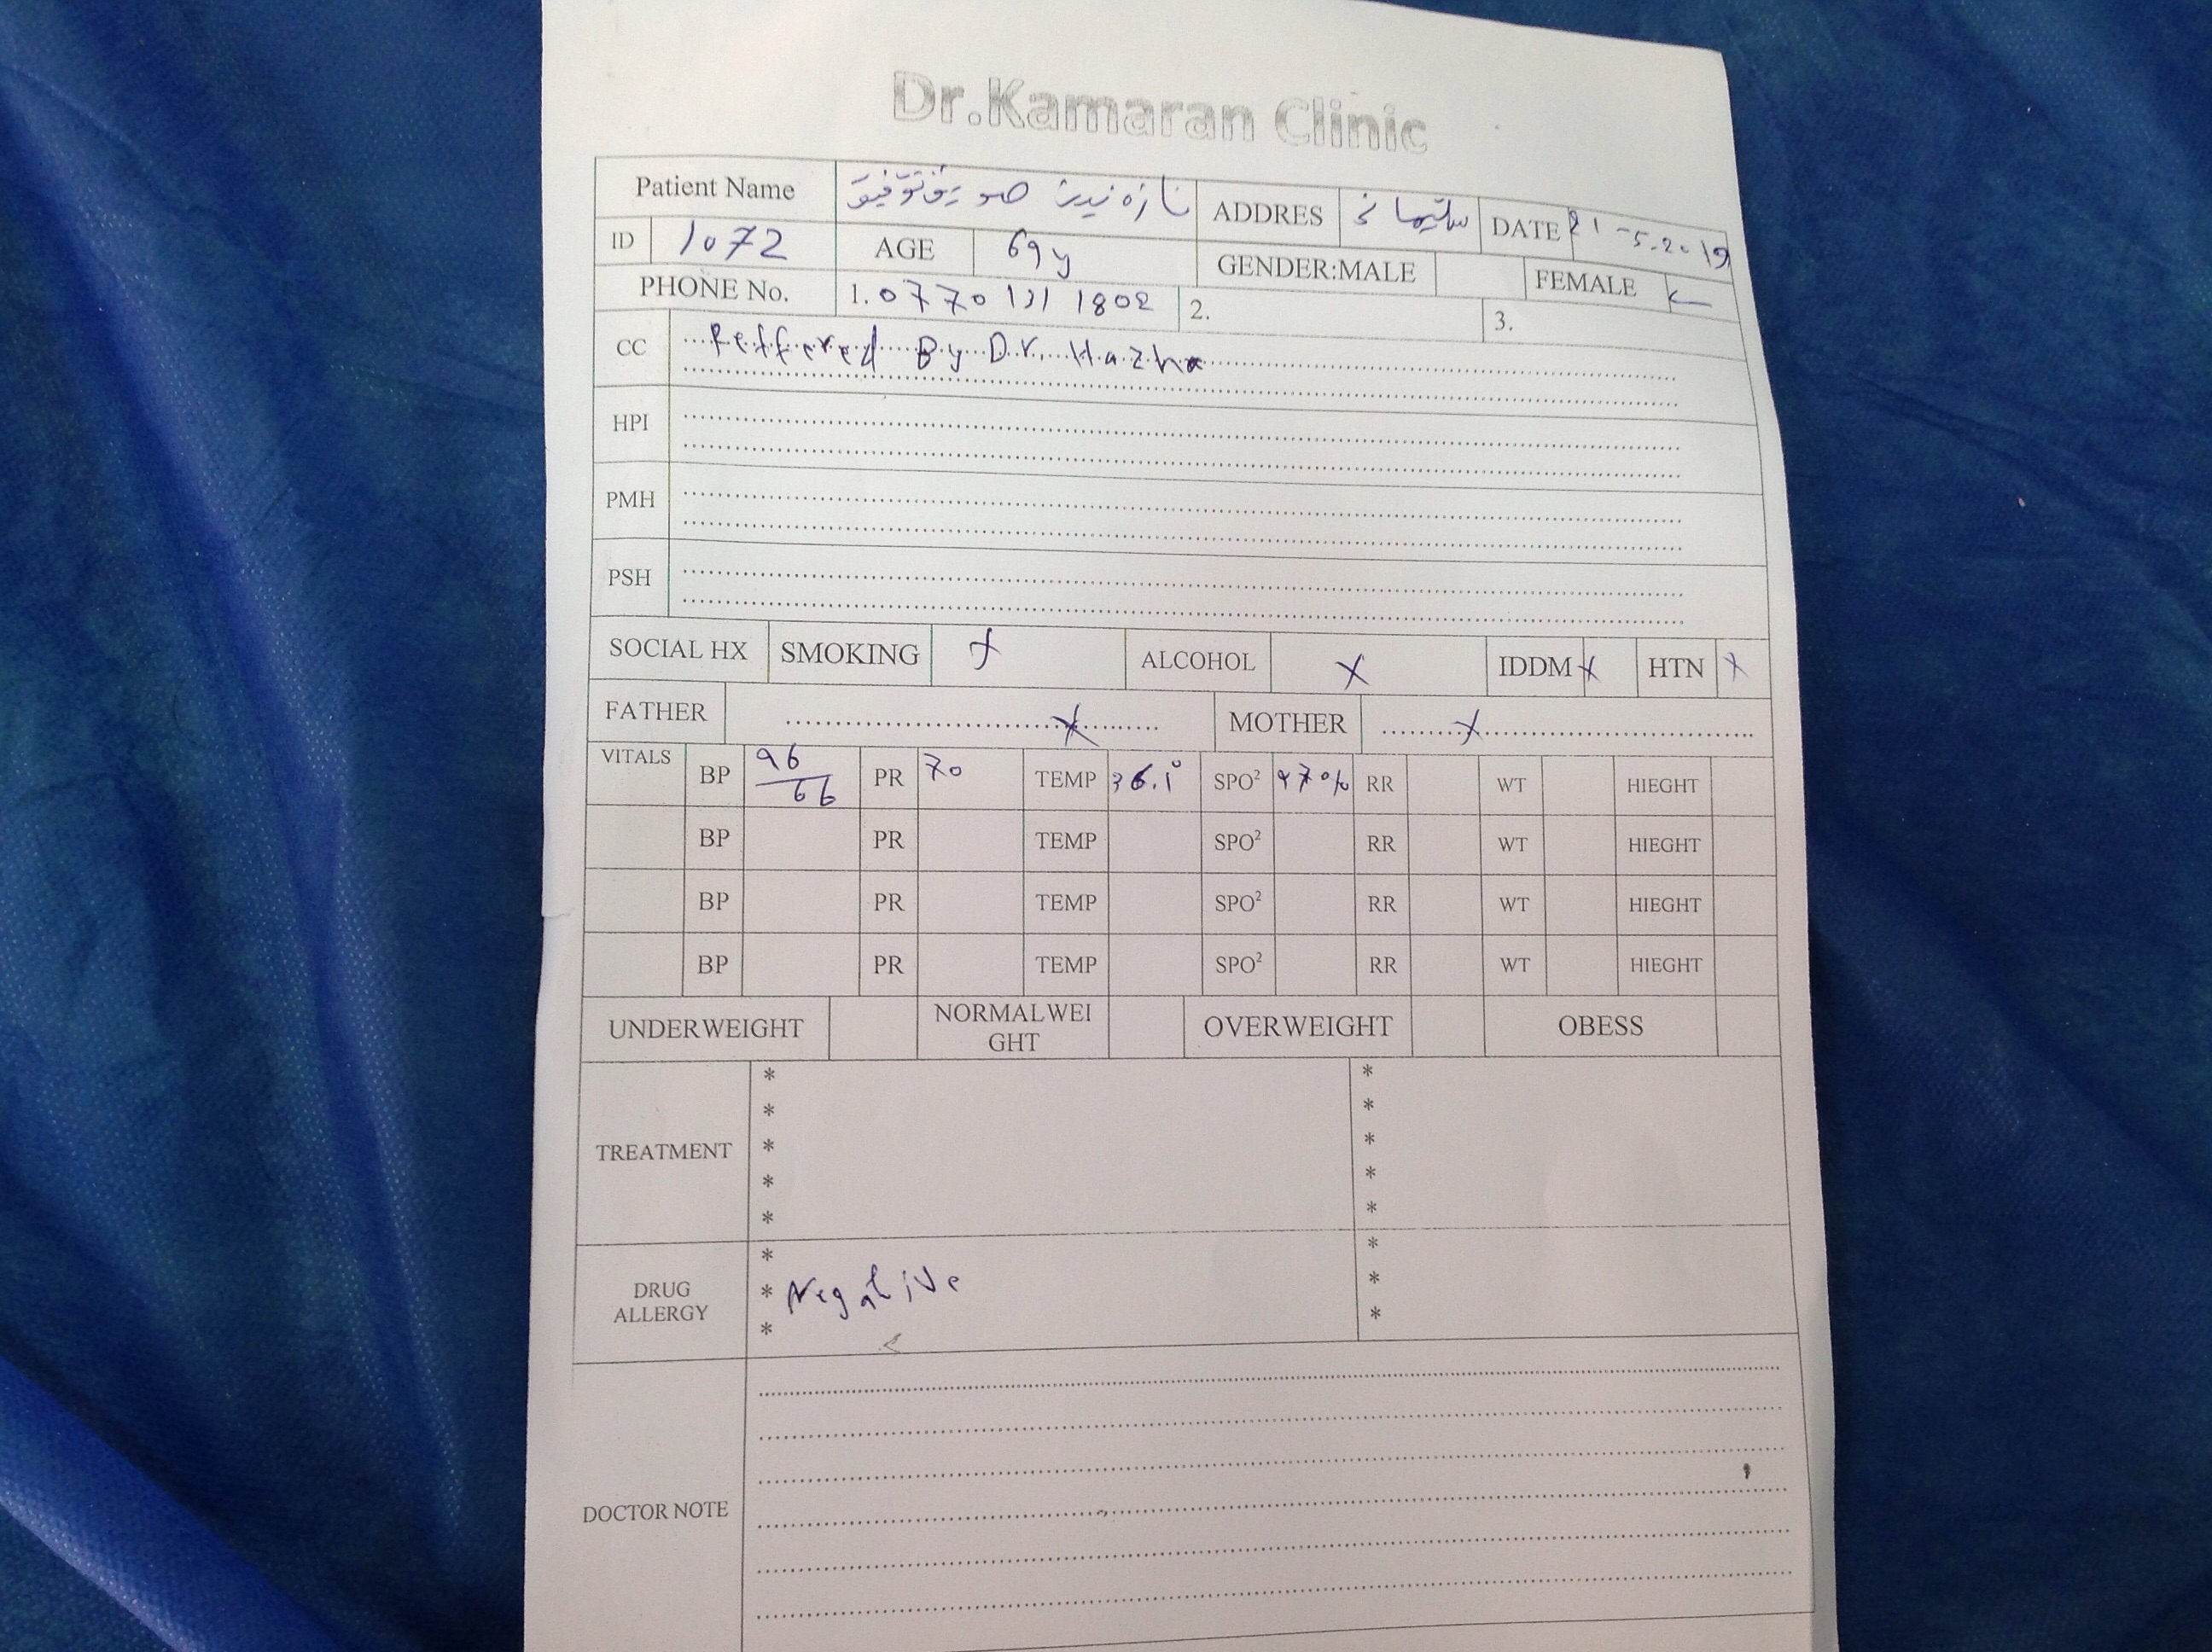 Dr.Kamaran Clinic
Patient Name ADDRES سلیمانی DATE 21-5-2019
ID 1072 AGE 69y GENDER:MALE FEMALE
PHONE No. 1. 0770 131 1802 2. 3.
CC Reffered By Dr. Hazha
HPI
PMH
PSH
SOCIAL HX SMOKING x ALCOHOL x IDDM x HTN x
FATHER x MOTHER x
VITALS BP 96/66 PR 70 TEMP 36.1° SPO² 97% RR WT HIEGHT
BP PR TEMP SPO² RR WT HIEGHT
BP PR TEMP SPO² RR WT HIEGHT
BP PR TEMP SPO² RR WT HIEGHT
UNDERWEIGHT NORMALWEI
GHT OVERWEIGHT OBESS
* *
* *
TREATMENT * *
* *
* *
* *
DRUG
ALLERGY * Negative *
* *
DOCTOR NOTE